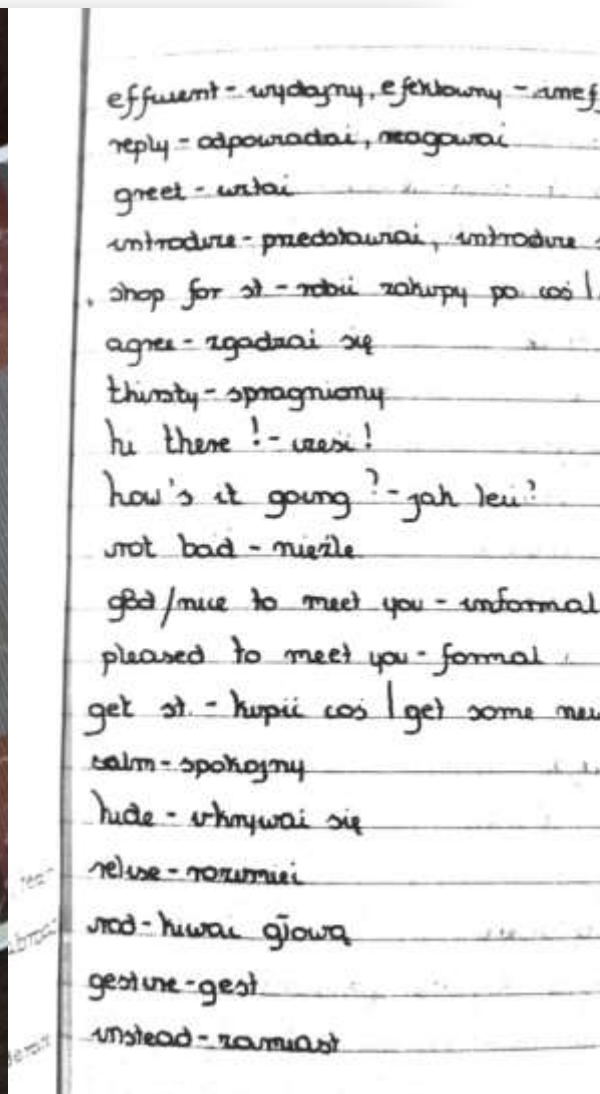 efficient - wydajny, efektowny - inef
reply - odpowiadać, reagować
greet - witać
introduce - przedstawiać, introduce s
shop for st - robić zakupy po coś |
agree - zgadzać się
thirsty - spragniony
hi there ! - cześć !
how's it going ? - jak leci ?
not bad - nieźle
glad/nice to meet you - informal
pleased to meet you - formal
get st. - kupić coś | get some new
calm - spokojny
hide - ukrywać się
- rozumieć
nod - kiwać głową
gesture - gest
instead - zamiast